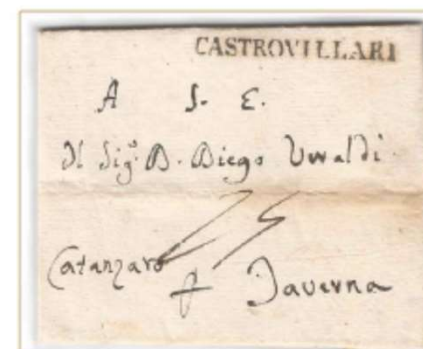 CASTROVILLARI
A S. E.
Il Sig.r D. Diego Vivaldi
Catanzaro
p Taverna